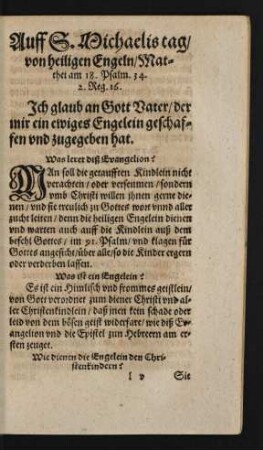 Auff S. Michaelis tag/
von heiligen Engeln/Mat-
thei am 18. Psalm. 34.
2. Reg. 16.
Ich glaub an Gott Vater/der
mir ein ewiges Engelein geschaf-
fen vnd zugegeben hat.
Was leret diß Euangelion?
MAn soll die getaufften Kindlein nicht
verachten/oder verseumen/sondern
vmb Christi willen jhnen gerne die-
nen/vnd sie treulich zu Gottes wort vnnd aller
zucht leiten/denn die heiligen Engelein dienen
vnd warten auch auff die Kindlein auß dem
befehl Gottes/im 91. Psalm/vnd klagen für
Gottes angesicht/über alle/so die Kinder ergern
oder verderben lassen.
Was ist ein Engelein?
Es ist ein Himlisch vnd frommes geistlein/
von Gott verordnet zum diener Christi vnd al-
ler Christenkindlein/daß jnen kein schade oder
leid von dem bösen geist widerfare/wie diß Eu-
angelion vnd die Epistel zun Hebreern am er-
sten zeuget.
Wie dienen die Engelein den Chri-
stenkindern?
l v Sie